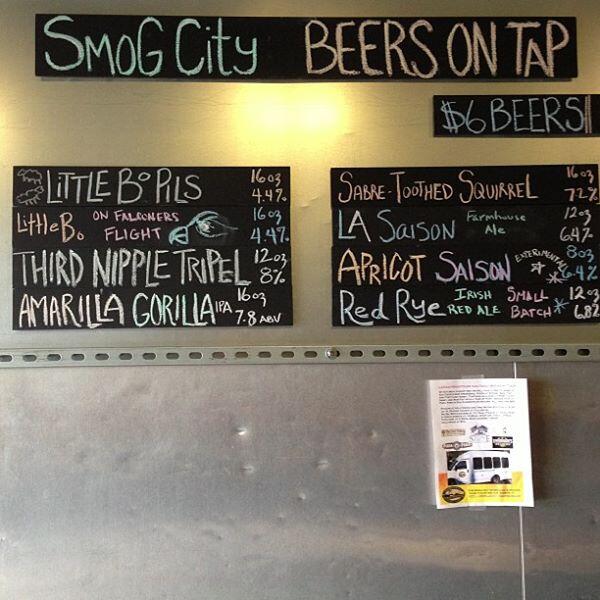 SMOG CITY BEERS ON TAP
$6 BEERS!
LITTLE BO PILS 16oz 4.4%
LITTLE BO ON FALCONERS FLIGHT 16oz 4.4%
THIRD NIPPLE TRIPEL 12oz 8%
AMARILLA GORILLA IPA 16oz 7.8 ABV
SABRE-TOOTHED SQUIRREL 16oz 7.2%
LA SAISON Farmhouse Ale 12oz 6.4%
APRICOT SAISON EXPERIMENTAL 8oz 6.4%
Red Rye IRISH RED ALE SMALL BATCH 12oz 6.8%